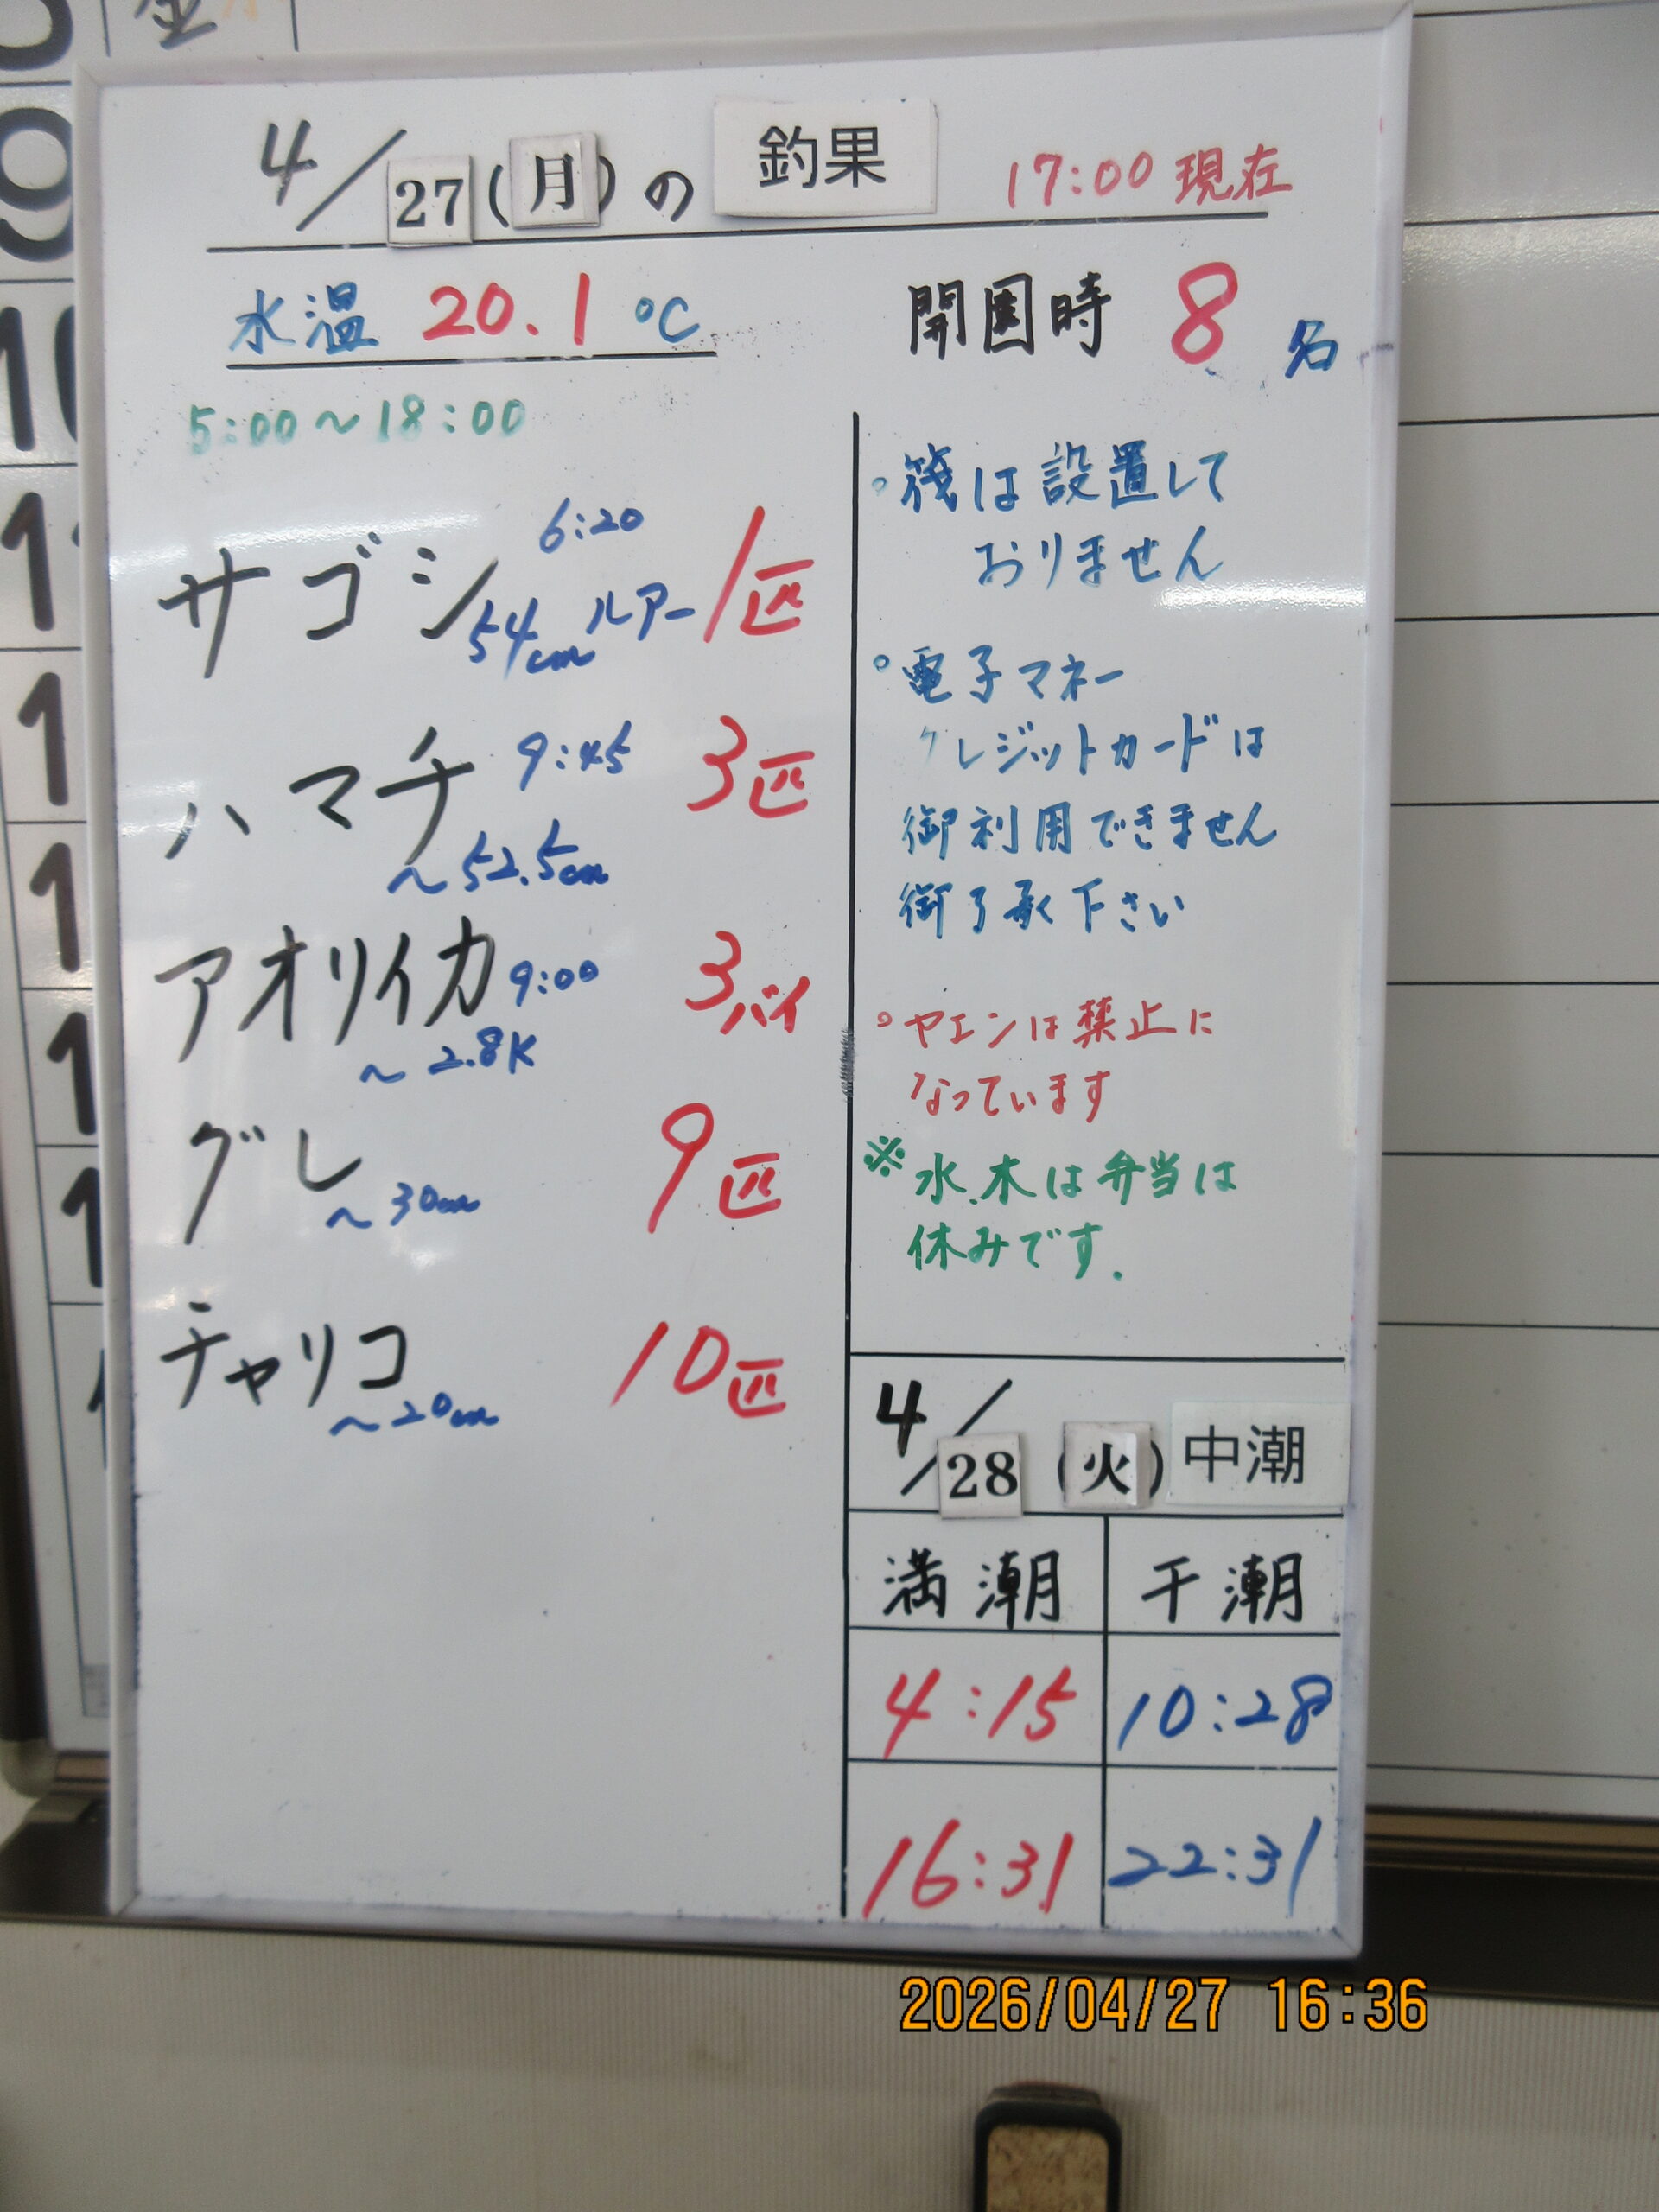 4/27(月)の 釣果 17:00 現在
水温 20.1 ℃
開園時 8 名
5:00～18:00
サゴシ 6:20 54cm ルアー 1匹
ハマチ 9:45 ～52.5cm 3匹
アオリイカ 9:00 ～2.8K 3バイ
グレ ～30cm 9匹
チャリコ ～20cm 10匹
◦筏は設置して
おりません
◦電子マネー
クレジットカードは
御利用できません
御了承下さい
◦ヤエンは禁止に
なっています
※水、木は弁当は
休みです.
4/28(火) 中潮
満潮 干潮
4:15 10:28
16:31 22:31
2026/04/27 16:36